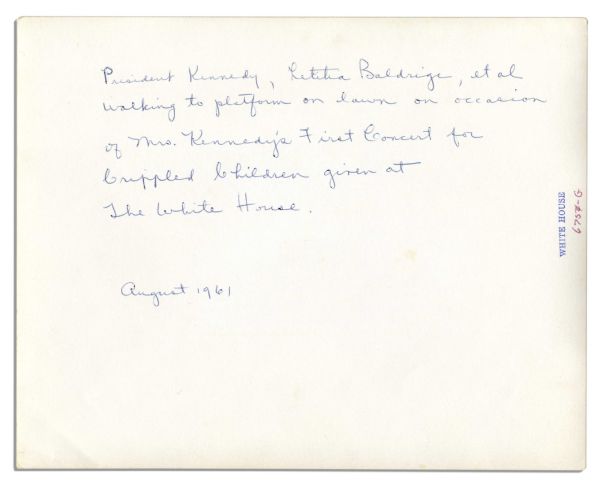 President Kennedy, Letitia Baldrige, et al
walking to platform on lawn on occasion
of Mrs. Kennedy's First Concert for
Crippled Children given at
The White House.
August 1961
WHITE HOUSE